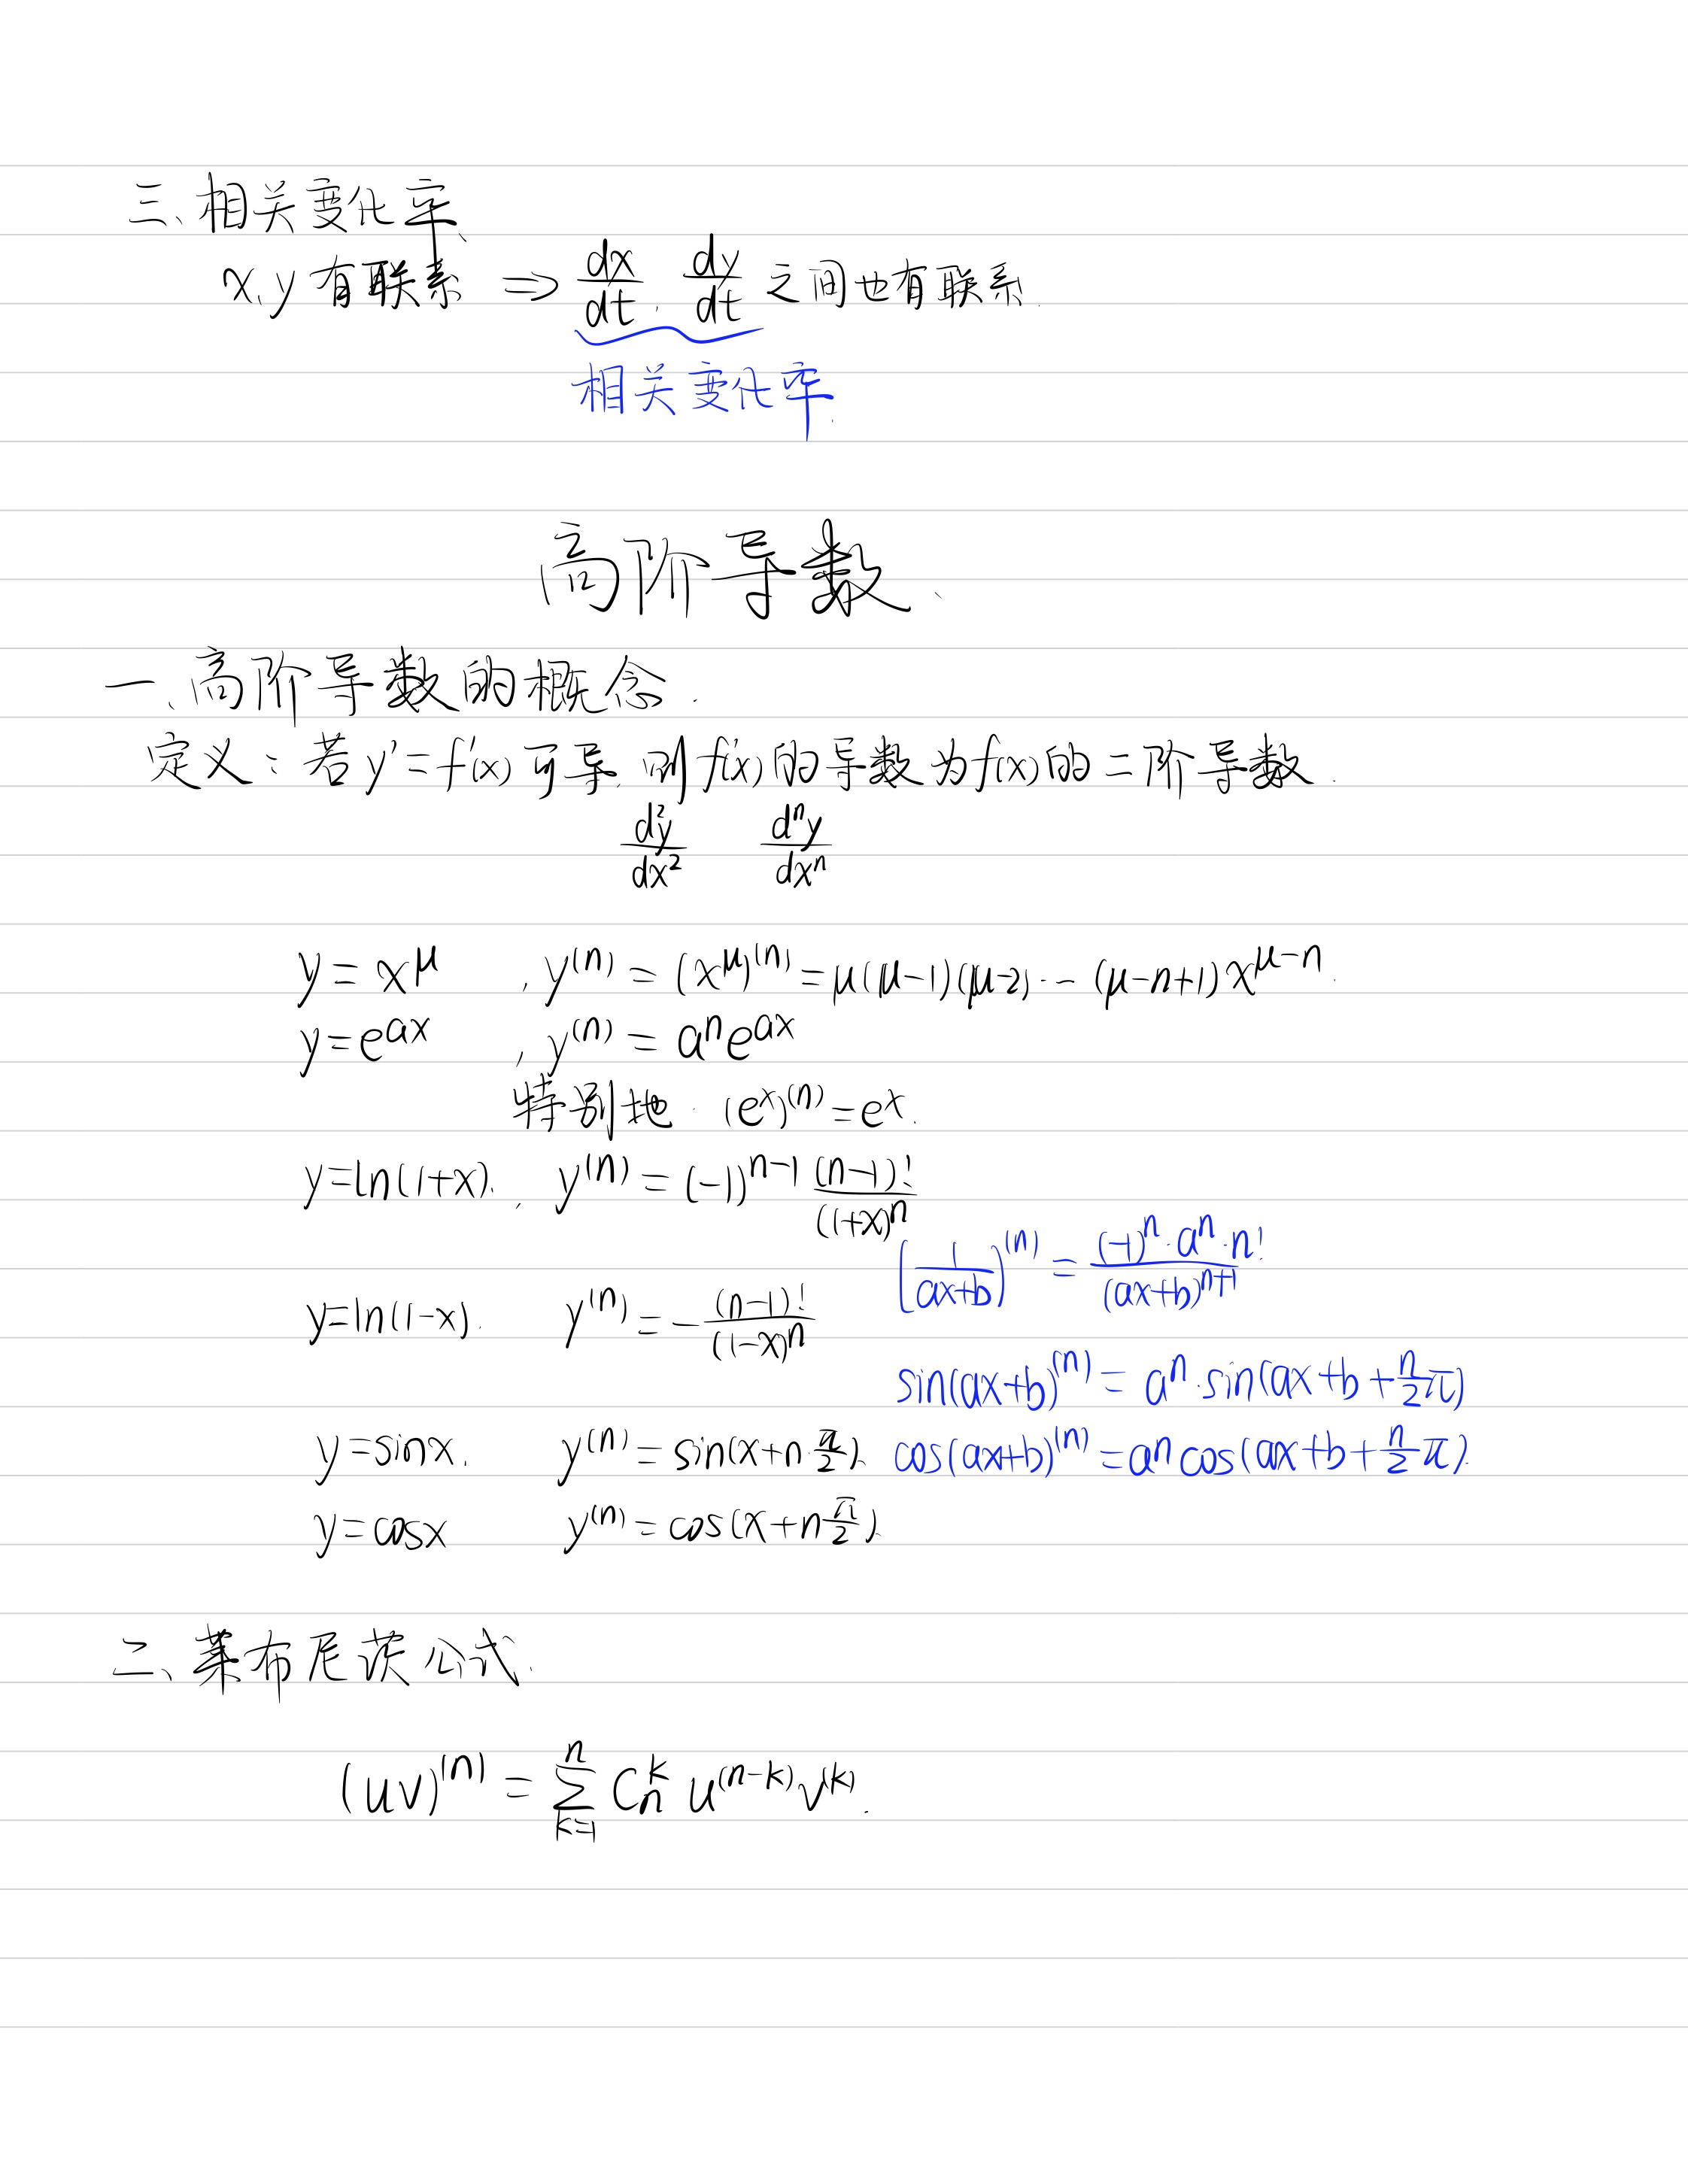 三、相关变化率
x、y 有联系 ⇒ dx/dt、dy/dt 之间也有联系.
相关变化率.
高阶导数.
一、高阶导数的概念.
定义：若 y'=f'(x) 可导, 则 f'(x) 的导数为 f(x) 的二阶导数.
d²y/dx²  dⁿy/dxⁿ
y = x^μ , y^(n) = (x^μ)^(n) = μ(μ-1)(μ-2)···(μ-n+1) x^(μ-n).
y = e^(ax) , y^(n) = a^n e^(ax)
特别地. (e^x)^(n) = e^x.
y = ln(1+x). , y^(n) = (-1)^(n-1) (n-1)!/(1+x)^n
(1/(ax+b))^(n) = (-1)^n·a^n·n!/(ax+b)^(n+1)
y = ln(1-x). y^(n) = -(n-1)!/(1-x)^n
sin(ax+b)^(n) = a^n·sin(ax+b+n/2 π)
y = sinx. y^(n) = sin(x+n·π/2). cos(ax+b)^(n) = a^n cos(ax+b+n/2 π).
y = cosx y^(n) = cos(x+n π/2).
二、莱布尼茨公式.
(uv)^(n) = ∑_(k=1)^n C_n^k u^(n-k) v^(k).